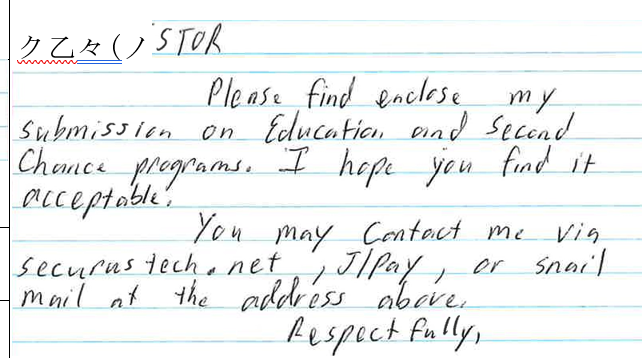 ク乙々(ノSTOR
Please find enclose my
submission on Education and Second
Chance programs. I hope you find it
acceptable.
You may Contact me via
securustech.net, J/Pay, or snail
mail at the address above.
Respectfully,